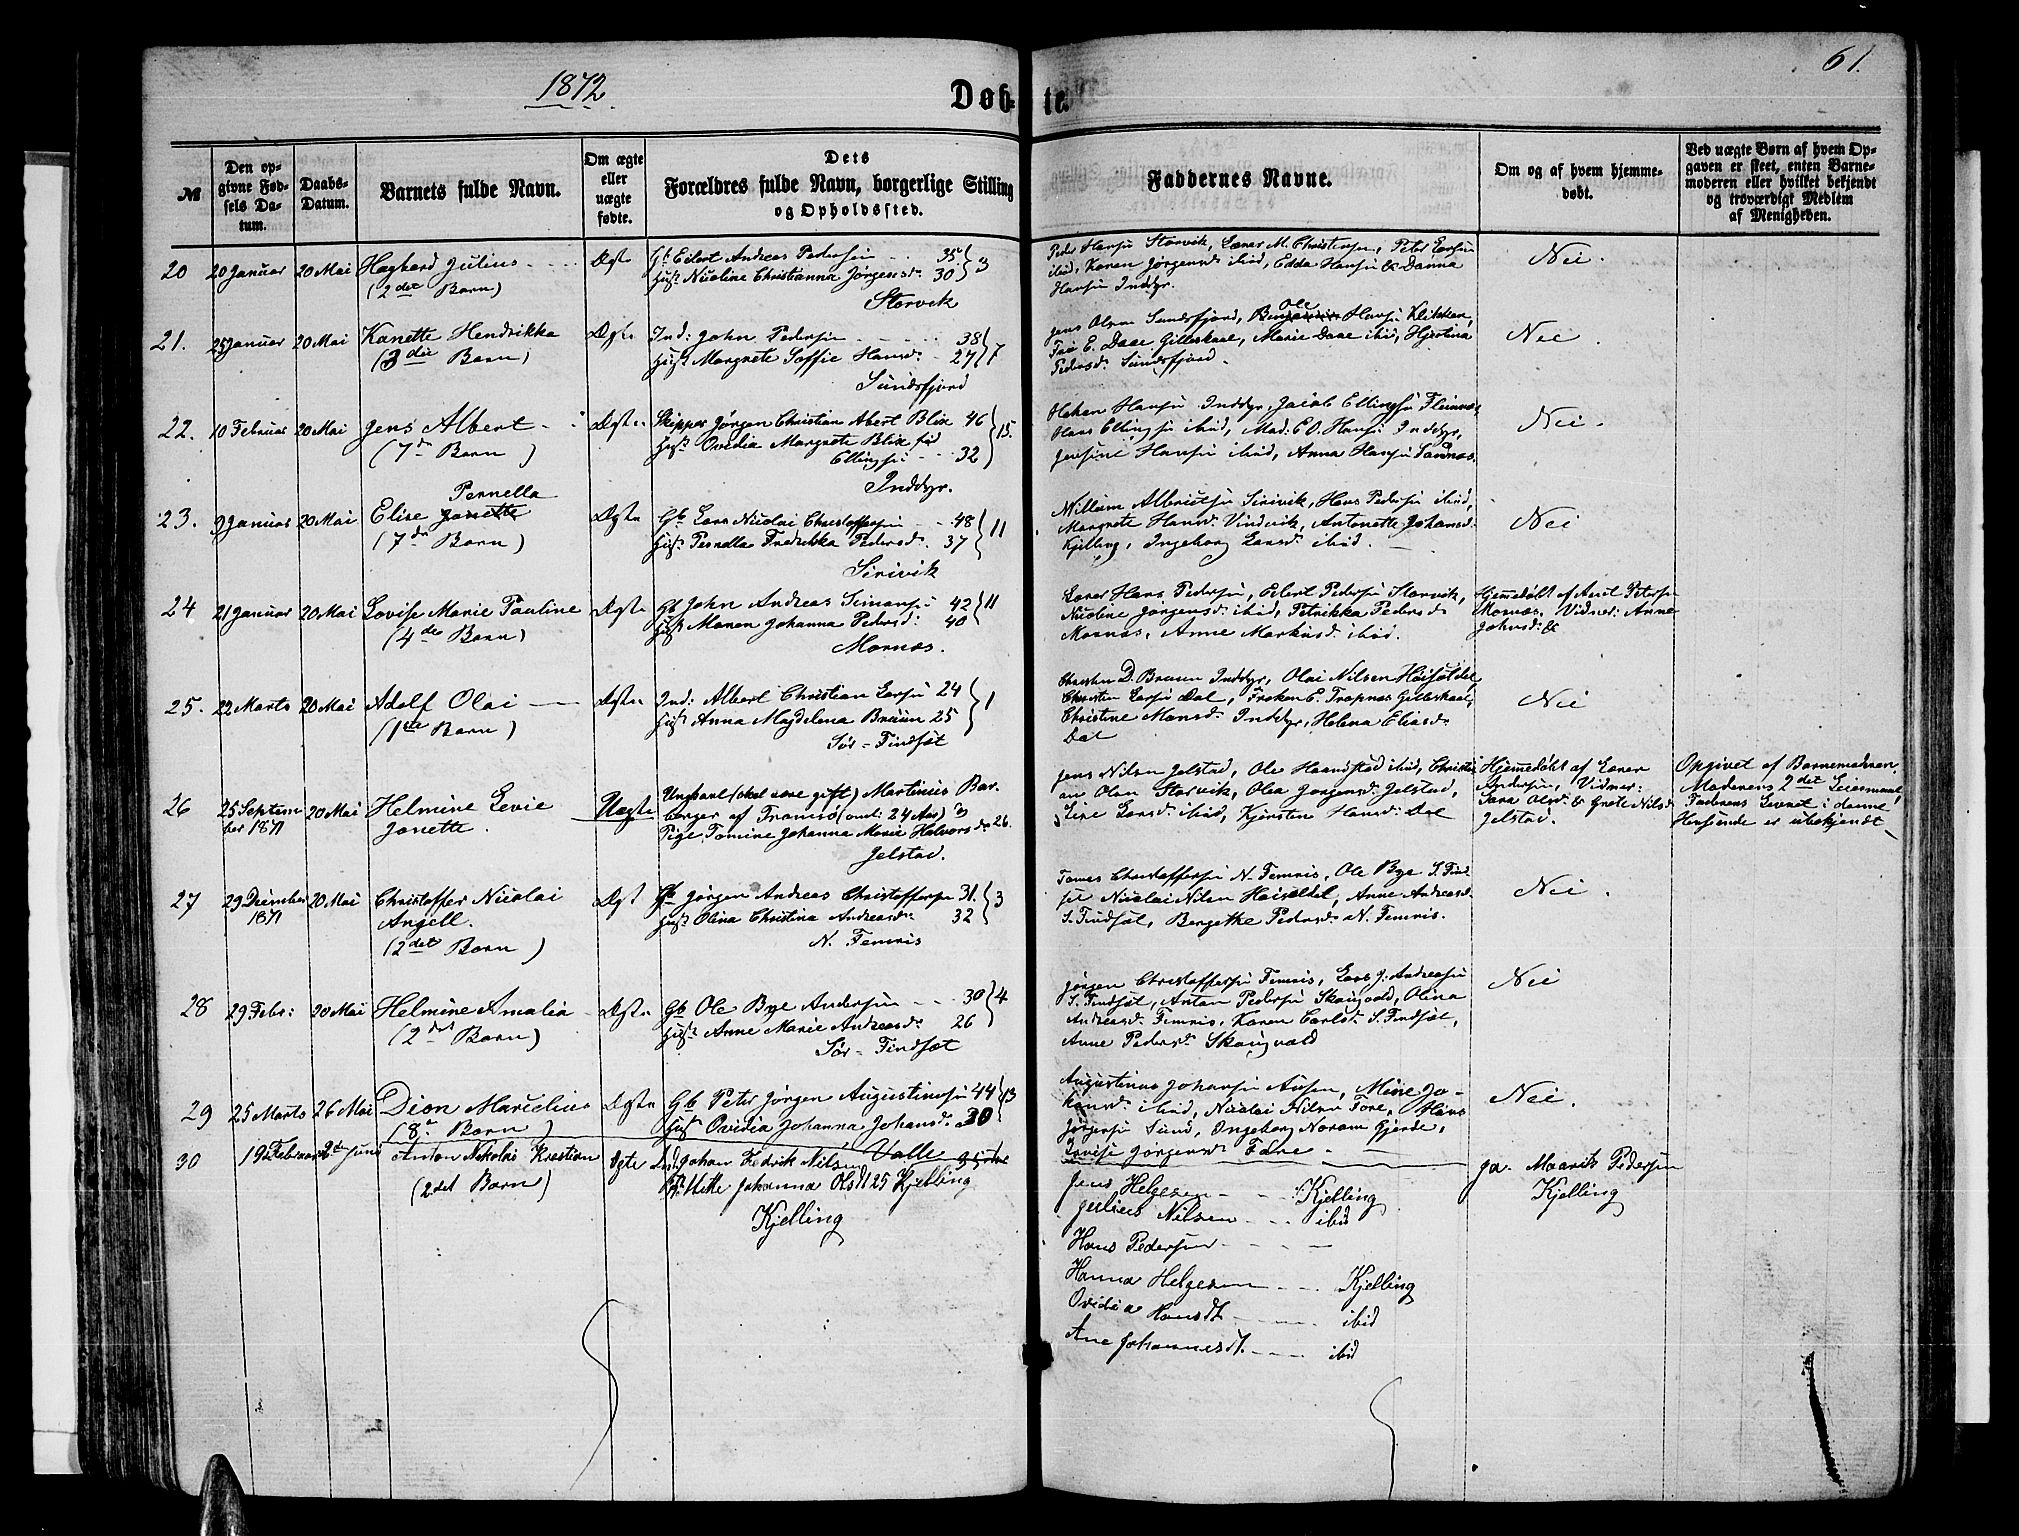 1872
Døb-
te.
61.
№
Den op-
givne Fød-
sels Da-
tum.
Daabs-
Datum.
Barnets fulde Navn.
Om ægte
eller
uægte
fødte.
Dets
Forældres fulde Navn, borgerlige Stilling
og Opholdssted.
Faddernes Navne.
Om og af hvem hjemme-
døbt.
Ved uægte Børn af hvem Op-
gaven er skeet, enten Barne-
moderen eller hvilket bekjendt
og troværdigt Medlem
af Menigheden.
20 20 Januar 20 Mai Hagbard Julius
(2det Barn)
Ægte
Gb. Eilert Andreas Pedersen 35
Hust. Nicoline Christianna Jørgensd. 30 } 3
Storvik
Peder Hansen Storvik, M. Christensen, Peter Larsen
ibid, Karen Jørgensd. ibid, Edda Hansen & Danna
Hansen Inddyr.
Nei.
21. 25 Januar 20 Mai Kanette Hendrikka
(3die Barn)
Ægte
Ind: John Pedersen 38
Hust. Margrete Soffie Hansd. 27 } 7
Sundsfjord
Jens Olsen Sundsfjord, Ole Hansen
E. Daae Gilleskaal, Marie Daae ibid, Hjertina
Pedersd. Sundsfjord.
Nei.
22. 10 Februar 20 Mai Jens Albert
(7de Barn)
Ægte
Skipper Jørgen Christian Abert Blix 46
Hust. Ovidia Margrete Blix fød
Ellingsen 32 } 15.
Inddyr.
Hakon Hansen Inddyr, Jacob Ellingsen Fleinvær,
Ellingsen ibid, Mad. E O. Hansen Inddyr,
Hansen ibid, Anna Hansen Sannæs.
Nei.
23. 9 Januar 20 Mai Elise Janette
Pernella
(7de Barn)
Ægte
Gb. Lars Nicolai Christoffersen 48
Hust. Pernella Fredrikka Pedersd. 37 } 11
Sirivik
Willum Albrictsen Sirivik, Hans Pedersen ibid,
Margrete Hansd. Vindvik, Antonette Johansd.
Kjelling, Ingeborg Larsd. ibid
Nei
24 21 Januar 20 Mai Lovise Marie Pauline
(4de Barn)
Ægte
Gb John Andreas Simonsen 42
Hust. Maren Johanna Pedersd. 40 } 11
Mornæs.
Hans Pedersen, Eilert Pedersen Storvik,
Nicoline Jørgensd. ibid, Petrikka Pedersd.
Mornæs, Anne Markusd. ibid.
Hjemedøbt af Axel Petersen
Mornæs. Vidner: Anne
Johnsd: &
25. 22 Marts 20 Mai Adolf Olai
(1ste Barn)
Ægte
Ind: Albert Christian Larsen 24
Hust. Anna Magdelena Bruun 25 } 1
Sør-Findsæt
Christen D. Bruun Inddyr, Olai Nilsen Høisøldel,
Christen Larsen Dal, Frøken E. Trapnæs Gilleskaal,
Christine Monsd. Inddyr, Helena Eliasd.
Dal
Nei
26 25 Septem 20 Mai Helmine Levie
ber 1871 Janette.
Uægte
Ungkarl (skal være gift) Martinius Bar-
borger af Tromsø (omt: 24 Aar) og
Pige Tomine Johanna Marie Halvorsd. 26.
Jelstad.
Jens Nilsen Jelstad, Ole Haandstad ibid, Christi
an Olsen Storvik, Olea Jørgensd. Jelstad,
Larsd. ibid, Kjersten Hansd. Dal
Hjemedøbt af
Andersen, Vidner:
Sara Olsd. & Grete Nilsd.
Jelstad.
Opgivet af Barnemoderen.
Moderens 2det Leiermaal,
Faderens Levnet i denne
Henseende er ubekjendt
27 29 December 20 Mai Christoffer Nicolai
1871 Angell.
(2det Barn)
Ægt
Gb Jørgen Andreas Christoffersen 31.
Hust. Olina Christina Andreasd. 32 } 3
N. Femris
Christoffersen N. Femris, Ole Bye S. Find
set Nicolai Nilsen Høisøldel, Anne Andreasd.
S. Findsæt, Bergette Pedersd. N. Femris.
Nei.
28 29 Febr: 20 Mai Helmine Amalia
(2det Barn)
Ægte
Gb Ole Bye Andersen 30
Hust. Anne Marie Andreasd. 26 } 4
Sør-Findsæt
Jørgen Christoffersen Femris, Lars J. Andreasen
S. Findsæt, Anton Pedersen Skougvold, Olina
Andreasd. Femris, Karen Carlsd. S. Findsæt,
Anne Pedersd. Skougvold
Nei
29 25 Marts 26 Mai Dion Marselius
(8de Barn)
Ægte
Gb Peter Jørgen Augustinsen 44
Hust. Ovidia Johanna Johansd. 30 } 13
Valle
Augustinus Johansen Ausen, Mine Jo-
hansd. ibid, Nicolai Nilsen Fore, Hans
Jørgensen Sund, Ingeborg Gjerde,
Lovise Jørgensd. Fore
Nei.
30 19 Februar 2den Juni Anton Nikolai Kristian
(2det Barn)
Ægte
Ind. Johan Fedrik Nilsen 35
Mette Johanna Olsdt 25 Kjelling
Kjelling
Jens Helgesen Kjelling
Julius Nilsen ibid
Hans Pedersen
Hanna Helgesen Kjelling
Ovidia Hansdt. ibid
Ane Johannesdt. ibid
Ja. Maarits Pedersen
Kjelling